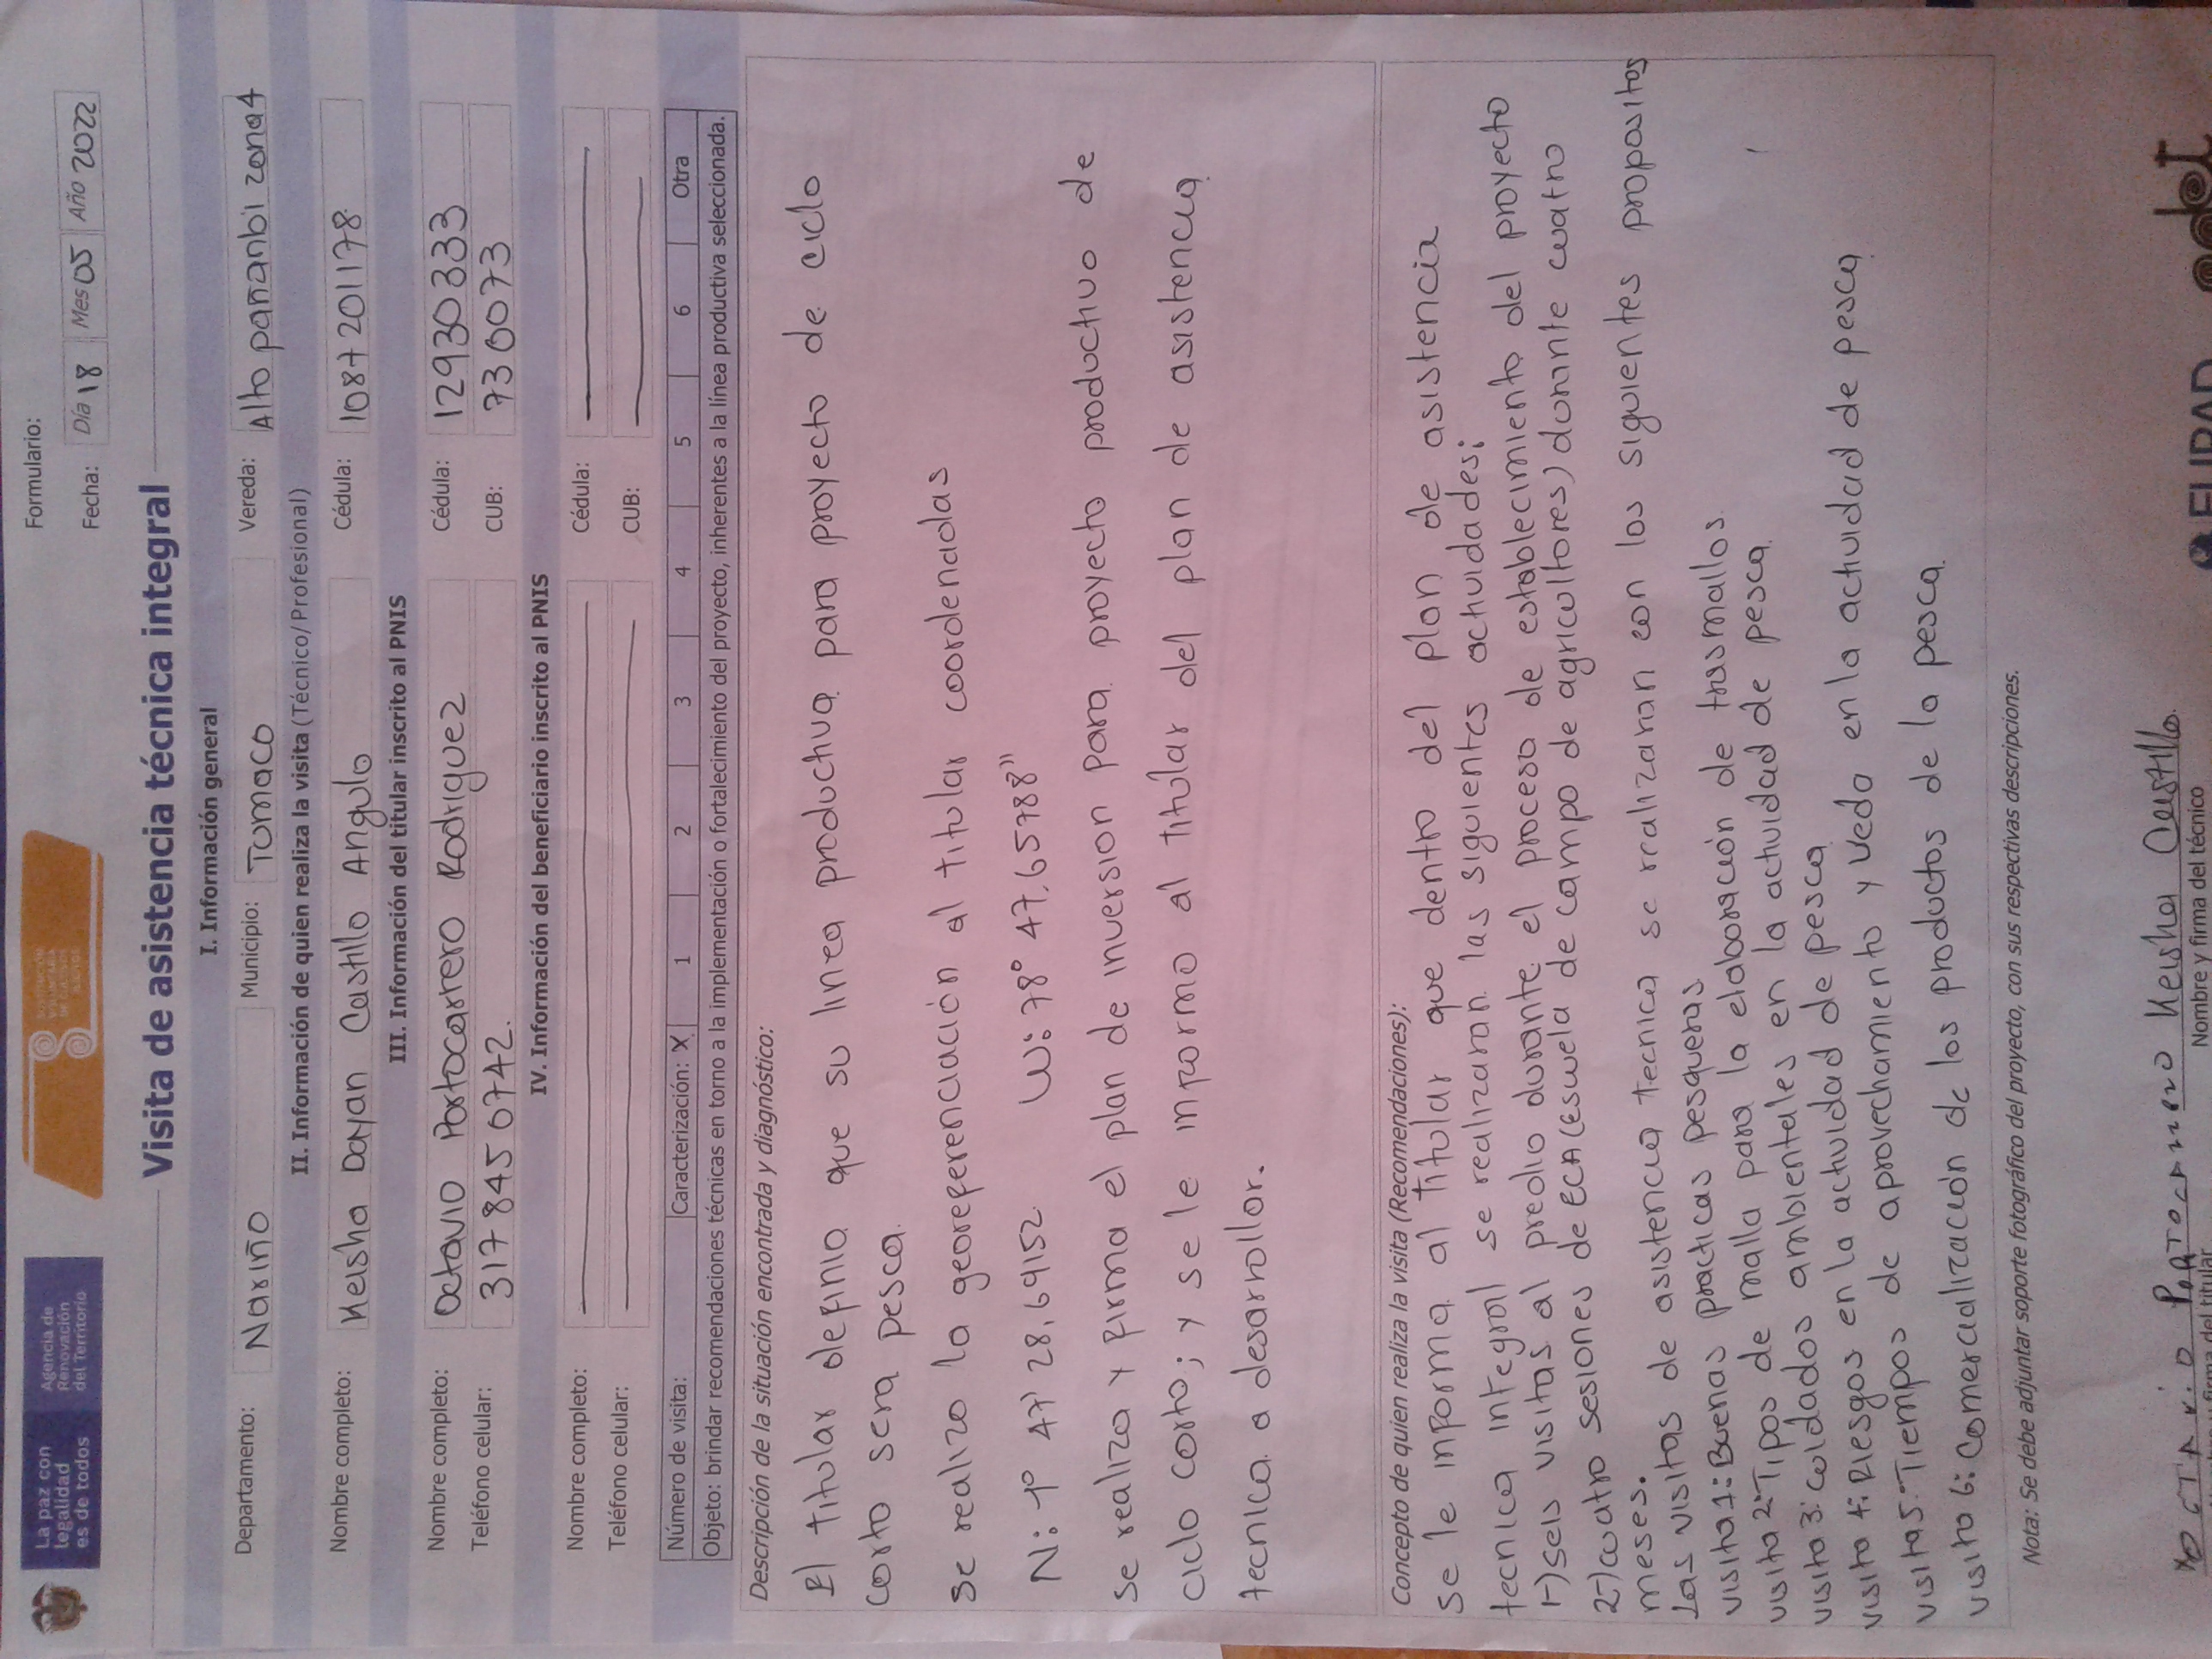 La paz con
legalidad
es de todos
Agencia de
Renovación
del Territorio
SUSTITUCIÓN
VOLUNTARIA
DE CULTIVOS
ILÍCITOS
Formulario:
Fecha: Día 18 Mes 05 Año 2022
Visita de asistencia técnica integral
I. Información general
Departamento: Nariño Municipio: Tumaco Vereda: Alto pañanbi zona4
II. Información de quien realiza la visita (Técnico/Profesional)
Nombre completo: Keisha Dayan Castillo Angulo Cédula: 1087201178
III. Información del titular inscrito al PNIS
Nombre completo: Octavio Portocarrero Rodriguez Cédula: 12930333
Teléfono celular: 3178450742. CUB: 730073
IV. Información del beneficiario inscrito al PNIS
Nombre completo: Cédula:
Teléfono celular: CUB:
Número de visita: Caracterización: X 1 2 3 4 5 6 Otra
Objeto: brindar recomendaciones técnicas en torno a la implementación o fortalecimiento del proyecto, inherentes a la línea productiva seleccionada.
Descripción de la situación encontrada y diagnóstico:
El titular definio que su linea productiva para proyecto de ciclo
corto sera pesca.
se realizo la georeferenciación al titular coordenadas
N: 1° 47' 28,69152 W: 78° 47,65788"
se realizo y firma el plan de inversion para proyecto productivo de
ciclo corto; y se le informo al titular del plan de asistencia
tecnica a desarrollar.
Concepto de quien realiza la visita (Recomendaciones):
se le informa al titular que dentro del plan de asistencia
tecnica integral se realizaran las siguientes actividades:
1-) seis visitas al predio durante el proceso de establecimiento del proyecto
2-) cuatro sesiones de ECA (escuela de campo de agricultores) durante cuatro
meses.
Las visitas de asistencia tecnica se realizaran con los siguientes propositos
visita 1: Buenas practicas pesqueras
visita 2: Tipos de malla para la elaboración de trasmallos.
visita 3: cuidados ambientales en la actividad de pesca
visita 4: Riesgos en la actividad de pesca
visita 5: Tiempos de aprovechamiento y vedo en la actividad de pesca
visita 6: comercialización de los productos de la pesca.
Nota: Se debe adjuntar soporte fotográfico del proyecto, con sus respectivas descripciones.
Keisha Castillo.
Nombre y firma del técnico
firma del titular